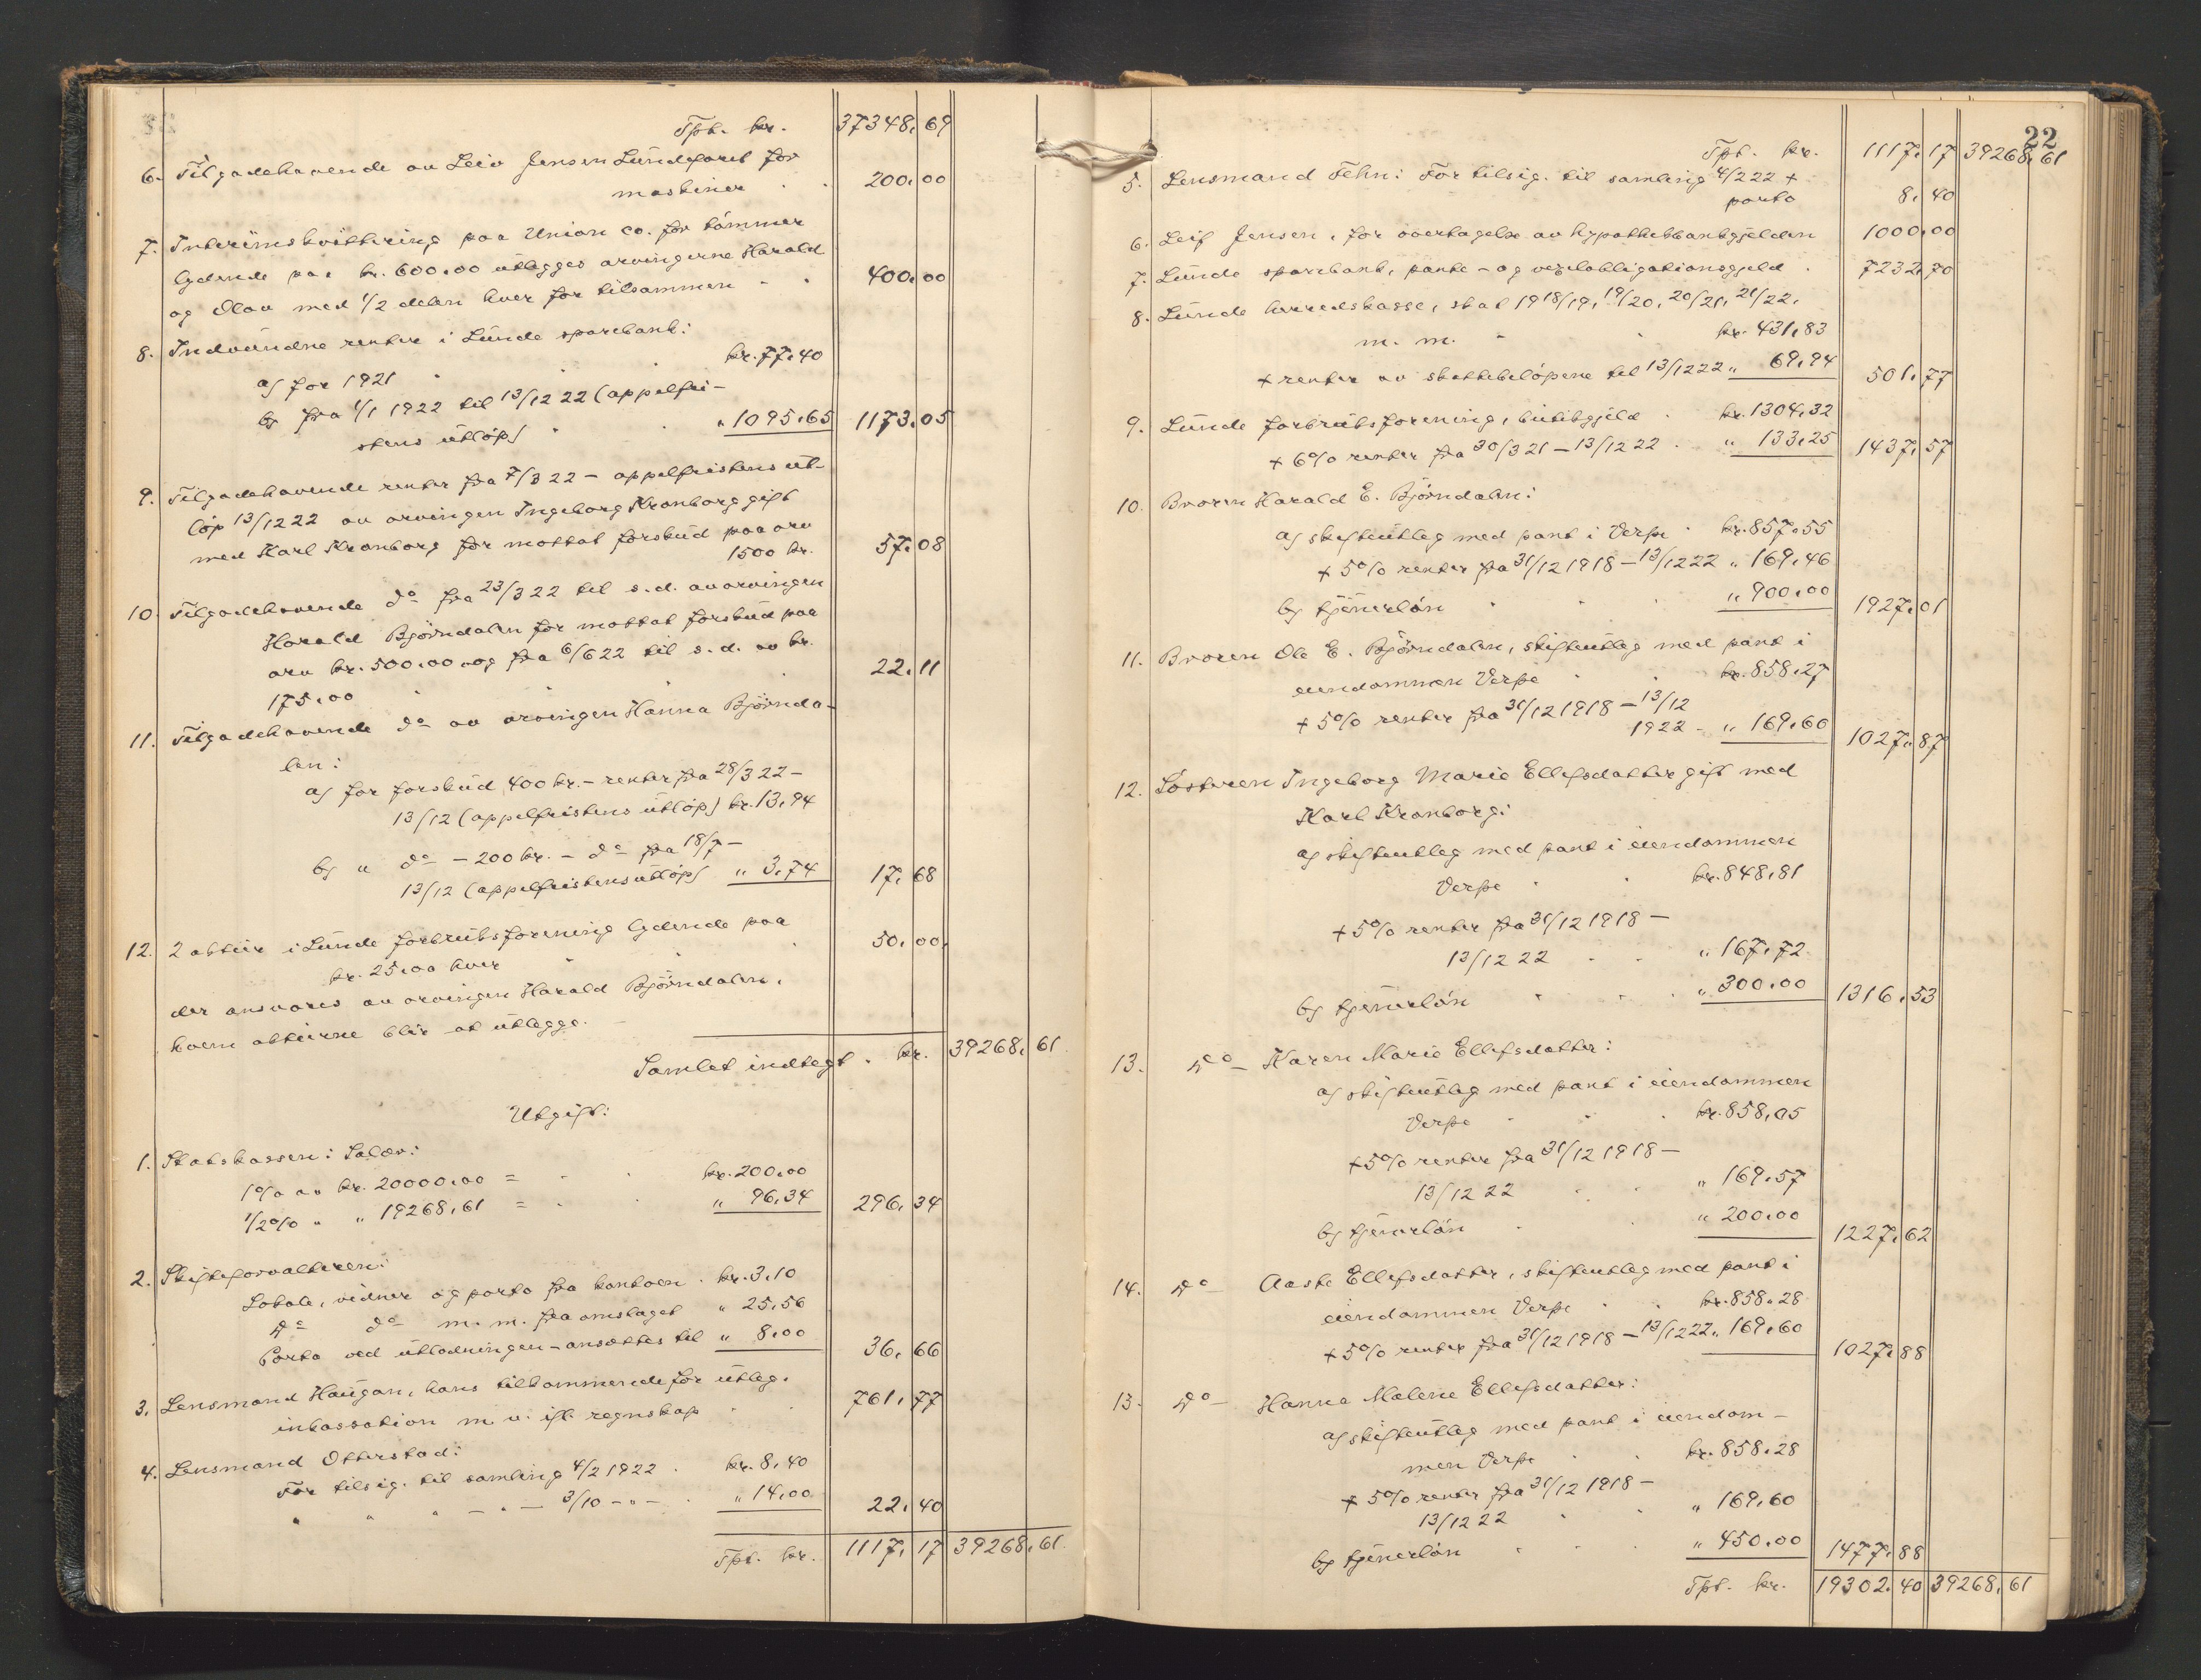 Tpt. kr. 37348,69
6. Tilgodehavende av Leiv Jensen Lundefaret for
maskiner 200,00
7. Interimskvittering paa Union co. for tömmer
lydende paa kr. 600,00 utlegges arvingerne Harald
og Olav med 1/2 delen hver for tilsammen 400,00
8. Indvundne renter i Lunde sparebank:
a) for 1921 kr. 77,40
b) fra 1/1 1922 til 13/12 22 (appelfri-
stens utlöp) " 1095,65 1173,05
9. Tilgodehavende renter fra 7/3 22 – appelfristens ut-
löp 13/12 22 av arvingen Ingeborg Kronborg gift
med Karl Kronborg for mottat forskud paa arv
1500 kr. 57,08
10. Tilgodehavende do fra 23/3 22 til s.d. av arvingen
Harald Björndalen for mottat forskud paa
arv kr. 500,00 og fra 6/6 22 til s.d. av kr.
175,00 22,11
11. Tilgodehavende do av arvingen Hanna Björnda-
len:
a) for forskud 400 kr. – renter fra 28/3 22 –
13/12 (appelfristens utlöp) kr. 13,94
b) " do – 200 kr. – do fra 18/7 –
13/12 (appelfristens utlöp) " 3,74 17,68
12. 2 aktier i Lunde forbruksforening lydende paa
kr. 25,00 hver 50,00
der ansvares av arvingen Harald Björndalen,
hvem aktierne blir at utlegge.
Samlet indtegt. kr. 39268,61
Utgift:
1. Statskassen: Salær:
1% av kr. 20000,00 = kr. 200,00
1/2% " " 19268,61 = " 96,34 296,34
2. Skifteforvalteren:
Lokale, vidner og porto fra kontoen. kr. 3,10
Do do m.m. fra omslaget " 25,56
Porto ved utlodningen – ansættes til " 8,00 36,66
3. Lensmand Haugan, hans tilkommende for utleg.
inkassation m.v. ifl. regnskap 761,77
4. Lensmand Otterstad:
For tilsig. til samling 4/2 1922 kr. 8,40
" " " – " – 3/10 – " – " 14,00 22,40
Tpt. kr. 1117,17 39268,61
22
Tpt. kr. 1117,17 39268,61
5. Lensmand Fehn: For tilsig. til samling 4/2 22 +
porto 8,40
6. Leif Jensen, for overtagelse av hypothekbankgjelden 1000,00
7. Lunde sparebank, pante- og vexelobligationsgjeld 7232,70
8. Lunde herredskasse, skat 1918/19, 19/20, 20/21, 21/22,
m. m. kr. 431,83
+ renter av skattebelöpene til 13/12 22 " 69,94 501,77
9. Lunde forbruksforening, butikgjeld kr. 1304,32
+ 6% renter fra 30/3 21 – 13/12 22 " 133,25 1437,57
10. Broren Harald E. Björndalen:
a) skifteutleg med pant i Verpe kr. 857,55
+ 5% renter fra 31/12 1918 – 13/12 22 " 169,46
b) tjenerlön " 900,00 1927,01
11. Broren Ole E. Björndalen, skifteutleg med pant i
eiendommen Verpe kr. 858,27
+ 5% renter fra 31/12 1918 – 13/12
1922 – " 169,60 1027,87
12. Sösteren Ingeborg Marie Ellefsdatter gift med
Karl Kronborg:
a) skifteutleg med pant i eiendommen
Verpe kr. 848,81
+ 5% renter fra 31/12 1918 –
13/12 22 " 167,72
b) tjenerlön " 300,00 1316,53
13. Do – Karen Marie Ellefsdatter:
a) skifteutleg med pant i eiendommen
Verpe kr. 858,05
+ 5% renter fra 31/12 1918 –
13/12 22 " 169,57
b) tjenerlön " 200,00 1227,62
14. Do – Aaste Ellefsdatter, skifteutleg med pant i
eiendommen Verpe kr. 858,28
+ 5% renter fra 31/12 1918 – 13/12 22 " 169,60 1027,88
13. Do – Hanna Malene Ellefsdatter:
a) skifteutleg med pant i eiendom-
men Verpe kr. 858,28
+ 5% renter fra 31/12 1918 –
13/12 22 " 169,60
b) tjenerlön " 450,00 1477,88
Tpt. kr. 19302,40 39268,61